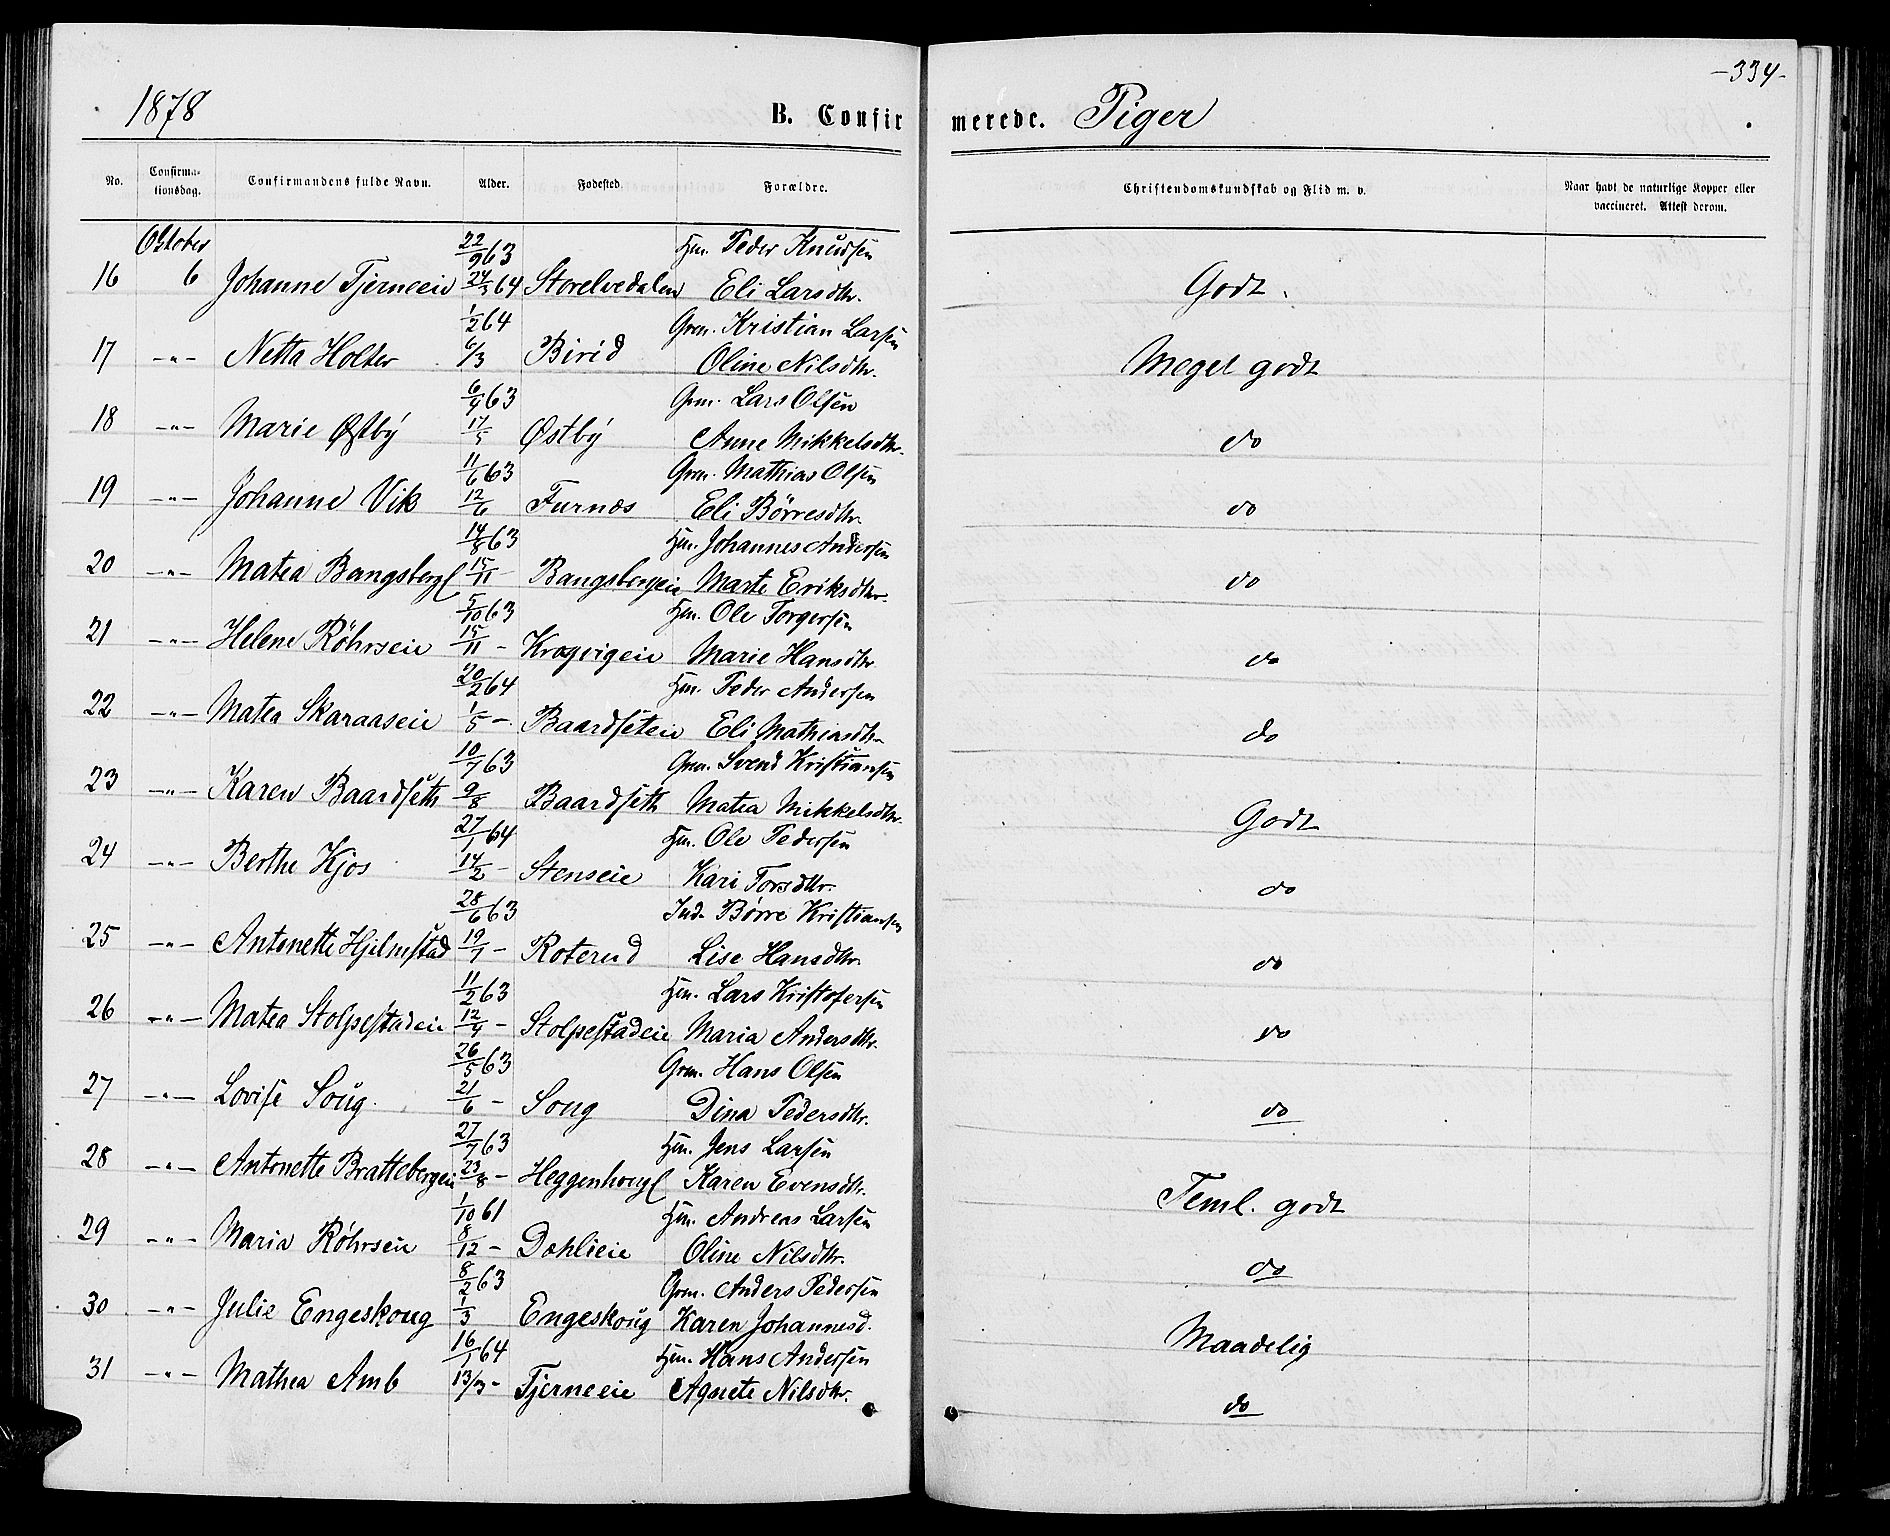 -334-
1878 B. Confirmerede. Piger
No. Confirmationsdag. Confirmandens fulde Navn. Alder. Fødested. Forældre. Christendomskundskab og Flid m. v. Naar havt de naturlige Kopper eller vaccineret. Attest derom.
October 22/9 63 Hm. Peder Knudsen
16 6 Johanne Tjerneeie 24/3 64 Storelvedalen Eli Larsdtr. Godt.
1/2 64 Grm. Kristian Larsen
17 -"- Netta Holter 6/3 Birid Oline Nilsdtr. Meget godt
6/4 63 Grm. Lars Olsen
18 -"- Marie Østby 17/5 Østby Anne Mikkelsdtr. do
11/6 63 Grm. Mathias Olsen
19 -"- Johanne Vik 12/6 Furnæs Eli Børresdtr. do
14/8 63 Hm. Johannes Andersen
20 -"- Matea Bangsbergl 15/11 Bangsbergeie Marte Eriksdtr. do
5/10 63 Hm. Ole Torgersen
21 -"- Helene Röhrseie 15/11 - Kragvigeie Marie Hansdtr. do
20/2 64 Hm. Peder Andersen
22 -"- Matea Skaraaseie 1/5 - Baardseteie Eli Mathiasdtr. do
10/7 63 Grm. Svend Kristiansen
23 -"- Karen Baardseth 9/8 Baardseth Matea Mikkelsdtr. Godt
27/1 64 Hm. Ole Pedersen
24 -"- Berthe Kjos 14/2 - Stenseie Kari Torsdtr. do
28/6 63 Ind. Børre Kristiansen
25 -"- Antonette Hjelmstad 19/7 - Roterud Lise Hansdtr. do
11/2 63 Hm. Lars Kristofersen
26 -"- Matea Stolpestadeie 12/4 - Stolpestadeie Maria Andersdtr. do
26/5 63 Grm. Hans Olsen
27 -"- Lovise Soug. 21/6 - Soug Dina Pedersdtr. do
27/7 63 Hm. Jens Larsen
28 -"- Antonette Brattebergeie 23/8 - Heggenhougl Karen Evensdtr. Teml. godt
1/10 61 Hm. Andreas Larsen
29 -"- Maria Røhrseie 8/12 - Dahlieie Oline Nilsdtr. do
8/2 63 Grm. Anders Pedersen
30 -"- Julie Engeskoug 1/3 Engeskoug Karen Johannesd. Maadelig
16/1 64 Hm. Hans Andersen
31 -"- Mathea Amb 13/3 - Tjerneeie Agnete Nilsdtr. do